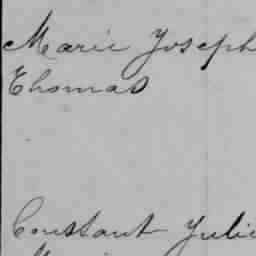 Marie Joseph
Thomas
Constant Julie